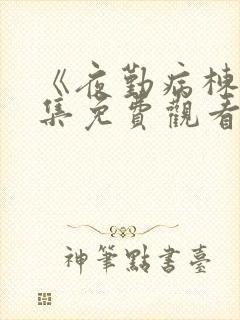 《夜勤病棟
集免費觀看
神筆點書臺